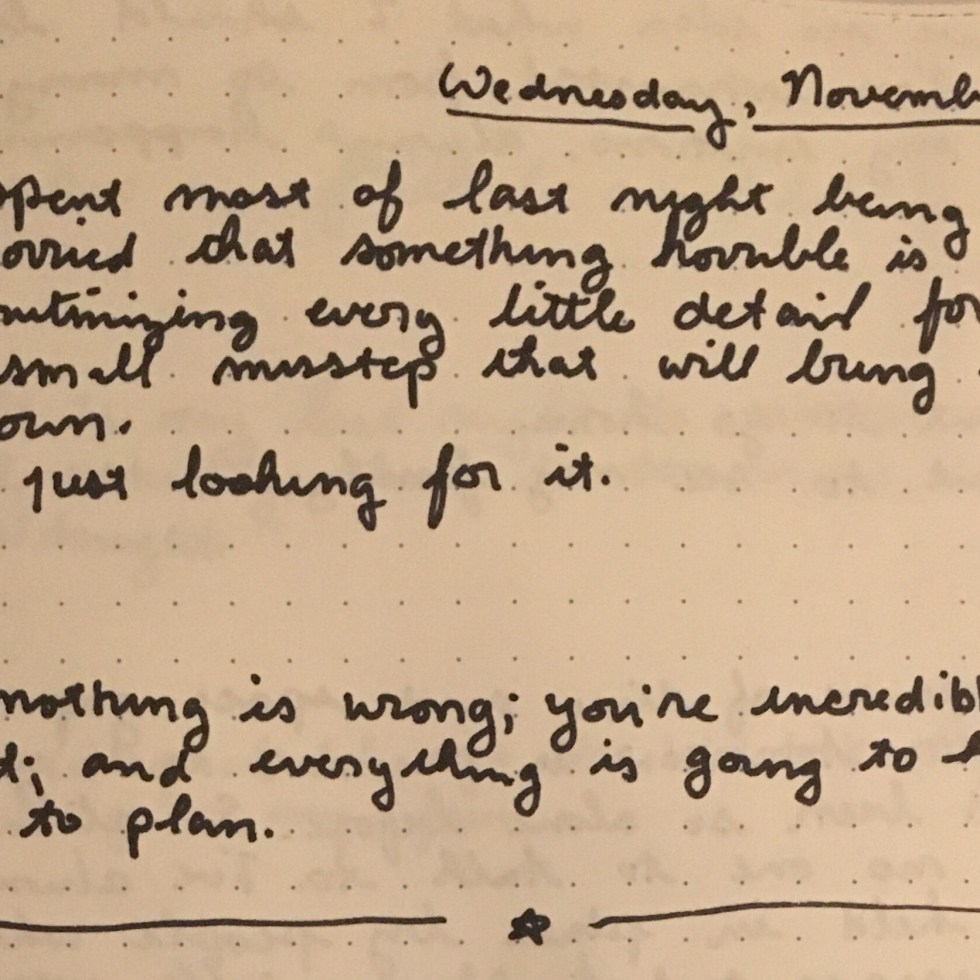 Wednesday, Novemb
spent most of last night being
orried that something horrible is
rutinizing every little detail for
small misstep that will bring
own.
just looking for it.
nothing is wrong; you're incredibl
d; and everything is going to
to plan.